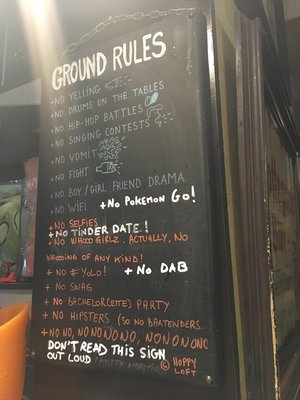 GROUND RULES
+NO YELLING
+NO DRUMS ON THE TABLES
+NO HIP-HOP BATTLES
+NO SINGING CONTESTS
+NO VOMIT
+NO FIGHT
+NO BOY/GIRL FRIEND DRAMA
+NO WIFI +NO POKEMON GO!
+NO SELFIES
+NO TINDER DATE.!
+NO WHOOO GIRLZ. ACTUALLY, NO
WHOOING OF ANY KIND!
+NO #YOLO! +NO DAB
+NO SWAG
+NO BACHELOR(ETTE) PARTY
+NO HIPSTERS (SO NO BARTENDERS...)
+NO NO, NO NO NO NO, NO NO NO NO
DON'T READ THIS SIGN
OUT LOUD
© HOPPY
LOFT